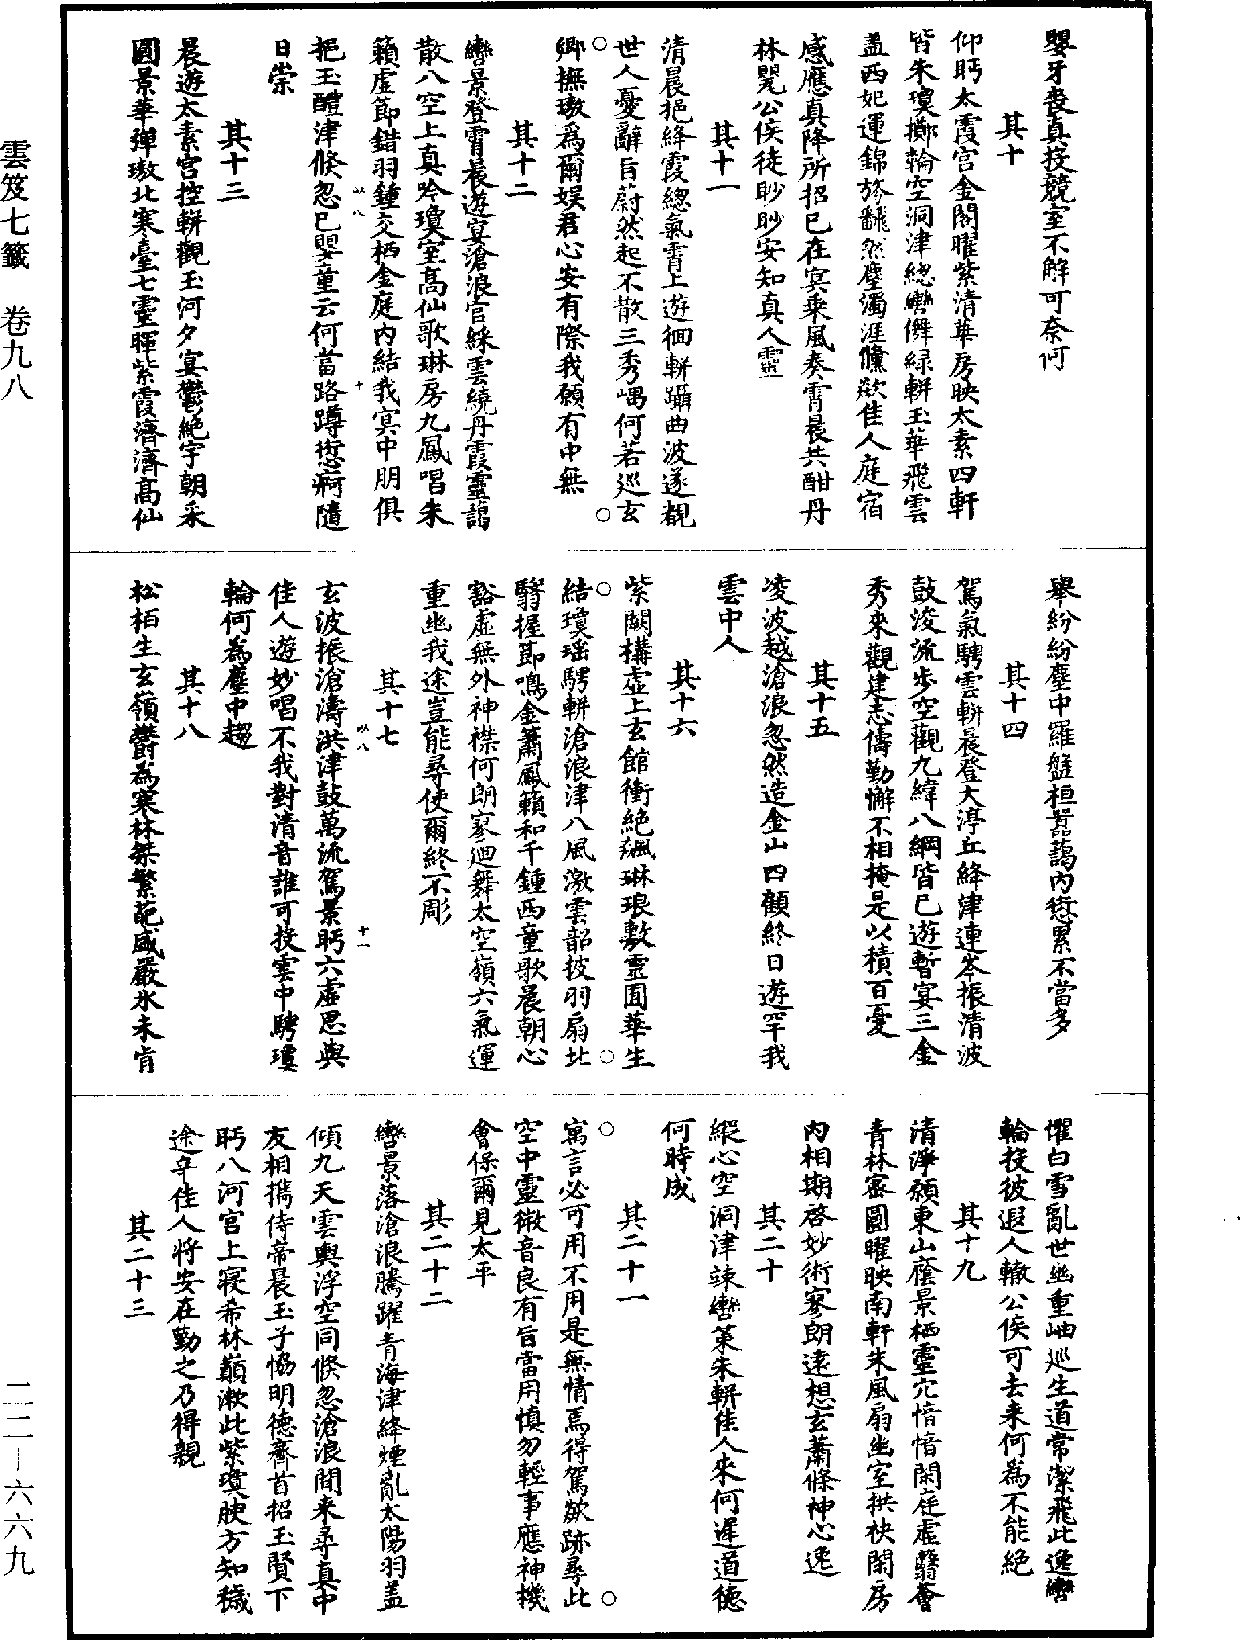 嬰牙喪真投競室不解可奈何
其十
仰眄太霞宮金閣曜紫清華房映太素四軒
皆朱瓊擲輪空洞津總轡儛綠軿玉華飛雲
蓋西妃運錦旍翻然塵濁涯儵欻佳人庭宿
感應真降所招已在冥乘風奏霄晨共酣丹
林甖公侯徒眇眇安知真人靈
其十一
清晨挹絳霞總氣霄上遊徊軿躡曲波遂覩
世人憂辭旨蔚然起不散三秀嵎何若巡玄
卿撫璈為爾娛君心安有際我願有中無
其十二
轡景登霄晨遊宴滄浪宮綵雲繞丹霞靈藹
散八空上真吟瓊室高仙歌琳房九鳳唱朱
籟虛節錯羽鍾交栖金庭內結我冥中朋俱
挹玉醴津倏忽已嬰童云何當路蹲愆痾隨
日崇
其十三
晨遊太素宮控軿觀玉河夕宴鬱絕宇朝采
圓景華彈璈北寒臺七靈暉紫霞濟濟高仙
舉紛紛塵中羅盤桓囂藹內愆累不當多
其十四
駕氣騁雲軿晨登大渟丘絳津連岑振清波
鼓浚流步空觀九緯八綱皆已遊暫宴三金
秀來觀建志儔勤懈不相掩是以積百憂
其十五
凌波越滄浪忽然造金山四顧終日遊罕我
雲中人
其十六
紫闕構虛上玄館衝絕飇琳琅敷靈囿華生
結瓊瑤騁軿滄浪津八風激雲韶披羽扇北
翳握節鳴金簫鳳籟和千鍾西童歌晨朝心
豁虛無外神襟何朗寥迴舞太空嶺六氣運
重幽我途豈能尋使爾終不彫
其十七
玄波振滄濤洪津鼓萬流駕景眄六虛思與
佳人遊妙唱不我對清音誰可投雲中騁瓊
輪何為塵中趨
其十八
松栢生玄嶺鬱為寒林桀繁葩盛嚴氷未肯
懼白雪亂世幽重岫巡生道常潔飛此逸轡
輪投彼遐人轍公侯可去來何為不能絕
其十九
清淨願東山蔭景栖靈穴愔愔閑庭虛翳薈
青林密圓曜映南軒朱風扇幽室拱袂閑房
內相期啓妙術寥朗遠想玄蕭條神心逸
其二十
縱心空洞津竦轡策朱軿佳人來何遲道德
何時成
其二十一
寓言必可用不用是無情焉得駕欻跡尋此
空中靈微音良有旨當用慎勿輕事應神機
會保爾見太平
其二十二
轡景落滄浪騰躍青海津絳煙亂太陽羽蓋
傾九天雲輿浮空同倏忽滄浪間來尋真中
友相攜侍帝晨玉子協明德齊首招玉賢下
眄八河宮上寢希林巔漱此紫瓊腴方知穢
途辛佳人將安在勤之乃得親
其二十三
雲笈七籤　卷九八
二二—六六九